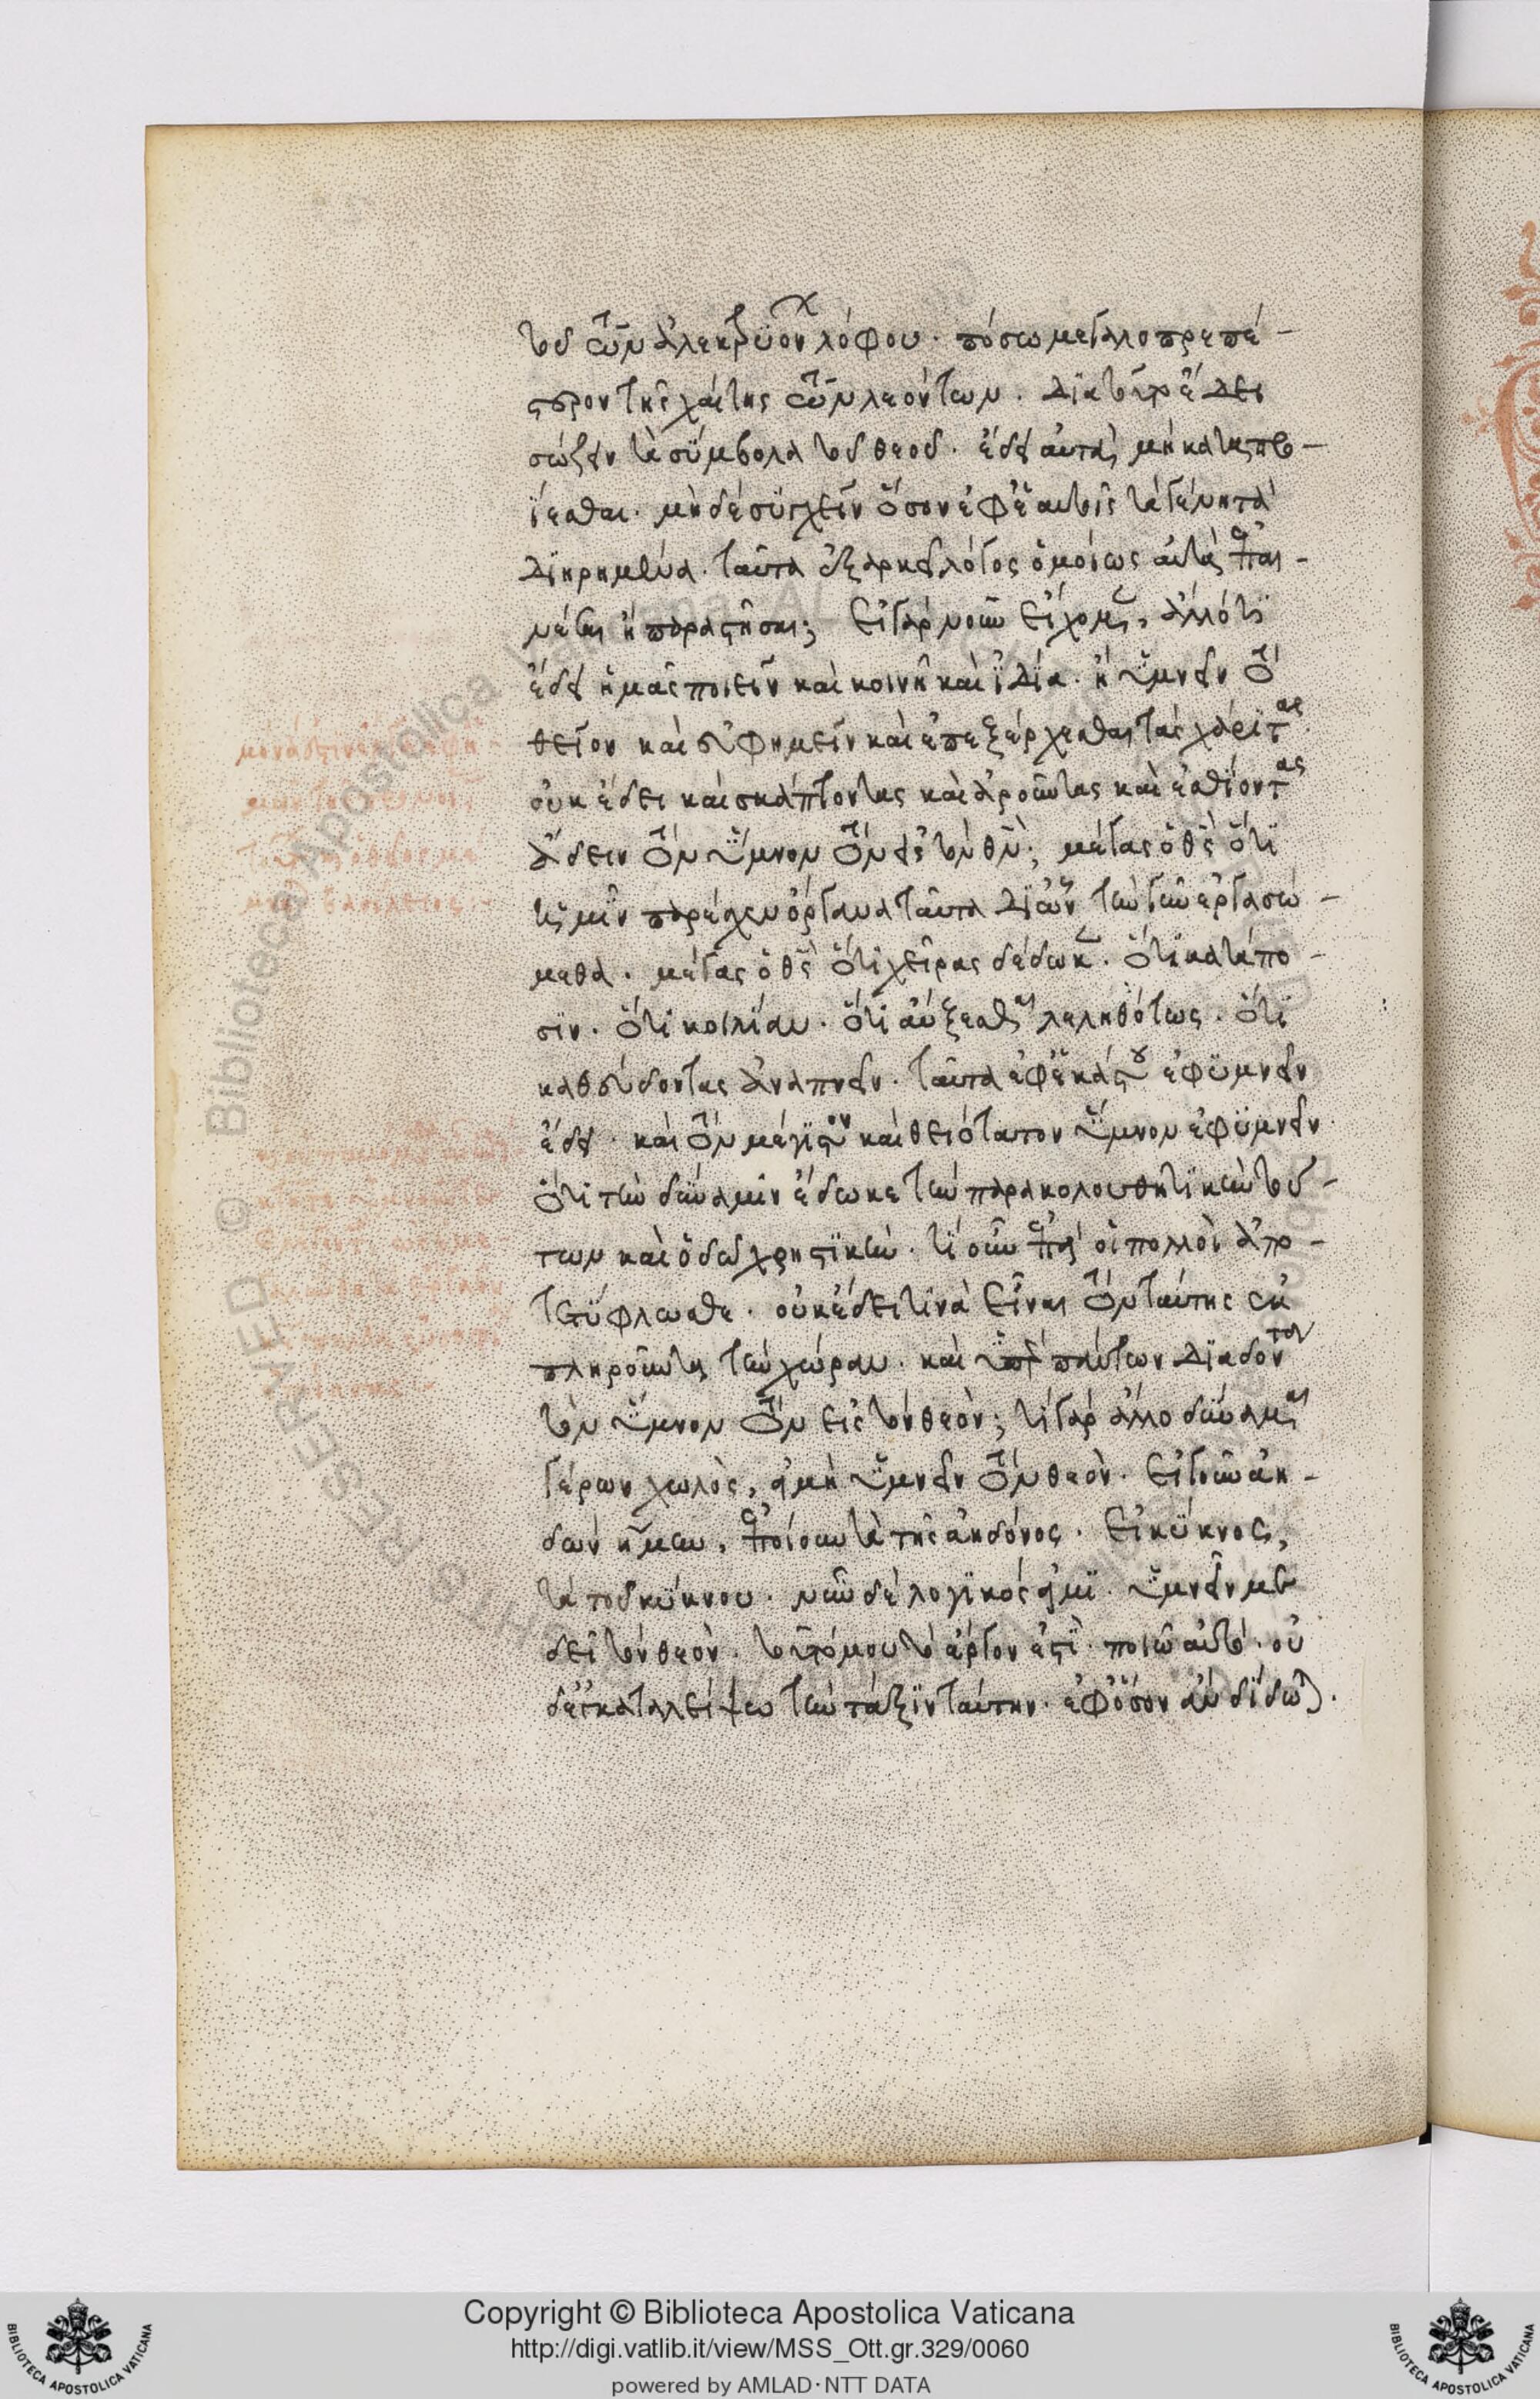 τοῦ τῶν ἀλεκτρυόνων λόφου. πόσω μεγαλοπρεπέ-
στερον τῆς χαίτης τῶν λεόντων. διατοῦτο ἔδει
σώζειν τὰ σύμβολα τοῦ θεοῦ. ἔδει αὐτὰ μὴ καταπρο-
ΐεσθαι. μηδὲ συγχεῖν ὅσον ἐφ' ἑαυτοῖς τὰ γένη τὰ
διῃρημένα. ταῦτα ἐξαρκεῖ λόγος ὁμοίως αὐτὰ ἐπαι-
νέσαι ἢ παραστῆσαι; εἰ γὰρ νοῦν εἴχομεν, ἄλλό τι
ἔδει ἡμᾶς ποιεῖν καὶ κοινῇ καὶ ἰδία. ἢ ὑμνεῖν τὸ
θεῖον καὶ εὐφημεῖν καὶ ἐπεξέρχεσθαι τὰς χάριτας.
οὐκ ἔδει καὶ σκάπτοντας καὶ ἀροῦντας καὶ ἐσθίοντας
ἄδειν τὸν ὕμνον τὸν εἰς τὸν θν; μέγας ὁ θς ὅτι
ἡμῖν παρέσχεν ὄργανα ταῦτα δι' ὧν τὴν γῆν ἐργασώ-
μεθα. μέγας ὁ θς ὅτι χεῖρας δέδωκεν. ὅτι κατάπο-
σιν. ὅτι κοιλίαν. ὅτι αὔξεσθαι λεληθότως. ὅτι
καθεύδοντας ἀναπνεῖν. ταῦτα ἐφ' ἑκάστου ἐφυμνεῖν
ἔδει. καὶ τὸν μέγιστον καὶ θειότατον ὕμνον ἐφυμνεῖν.
ὅτι τὴν δύναμιν ἔδωκε τὴν παρακολουθητικὴν τού-
των καὶ ὁδῷ χρηστικὴν. τί οὖν ἐπεὶ οἱ πολλοὶ ἀπο-
τετύφλωσθε. οὐκ ἔδει τινὰ εἶναι τὸν ταύτης ἐκ
πληροῦντα τὴν χώραν. καὶ ὑπὲρ πάντων διαδόντα
τὸν ὕμνον τὸν εἰς τὸν θεόν; τί γὰρ ἄλλο δύναμαι
γέρων χωλὸς, εἰ μὴ ὑμνεῖν τὸν θεόν. εἰ γοῦν ἀη-
δὼν ἤμην, ἐποίουν τὰ τῆς ἀηδόνος. εἰ κύκνος,
τὰ τοῦ κύκνου. νῦν δὲ λογικός εἰμι. ὑμνεῖν με
δεῖ τὸν θεόν. τοῦτό μου τὸ ἔργον ἐστί. ποιῶ αὐτό. οὐ
δ' ἐγκαταλείψω τὴν τάξιν ταύτην. ἐφ' ὅσον ἂν διδῶται.
Copyright © Biblioteca Apostolica Vaticana
http://digi.vatlib.it/view/MSS_Ott.gr.329/0060
powered by AMLAD·NTT DATA